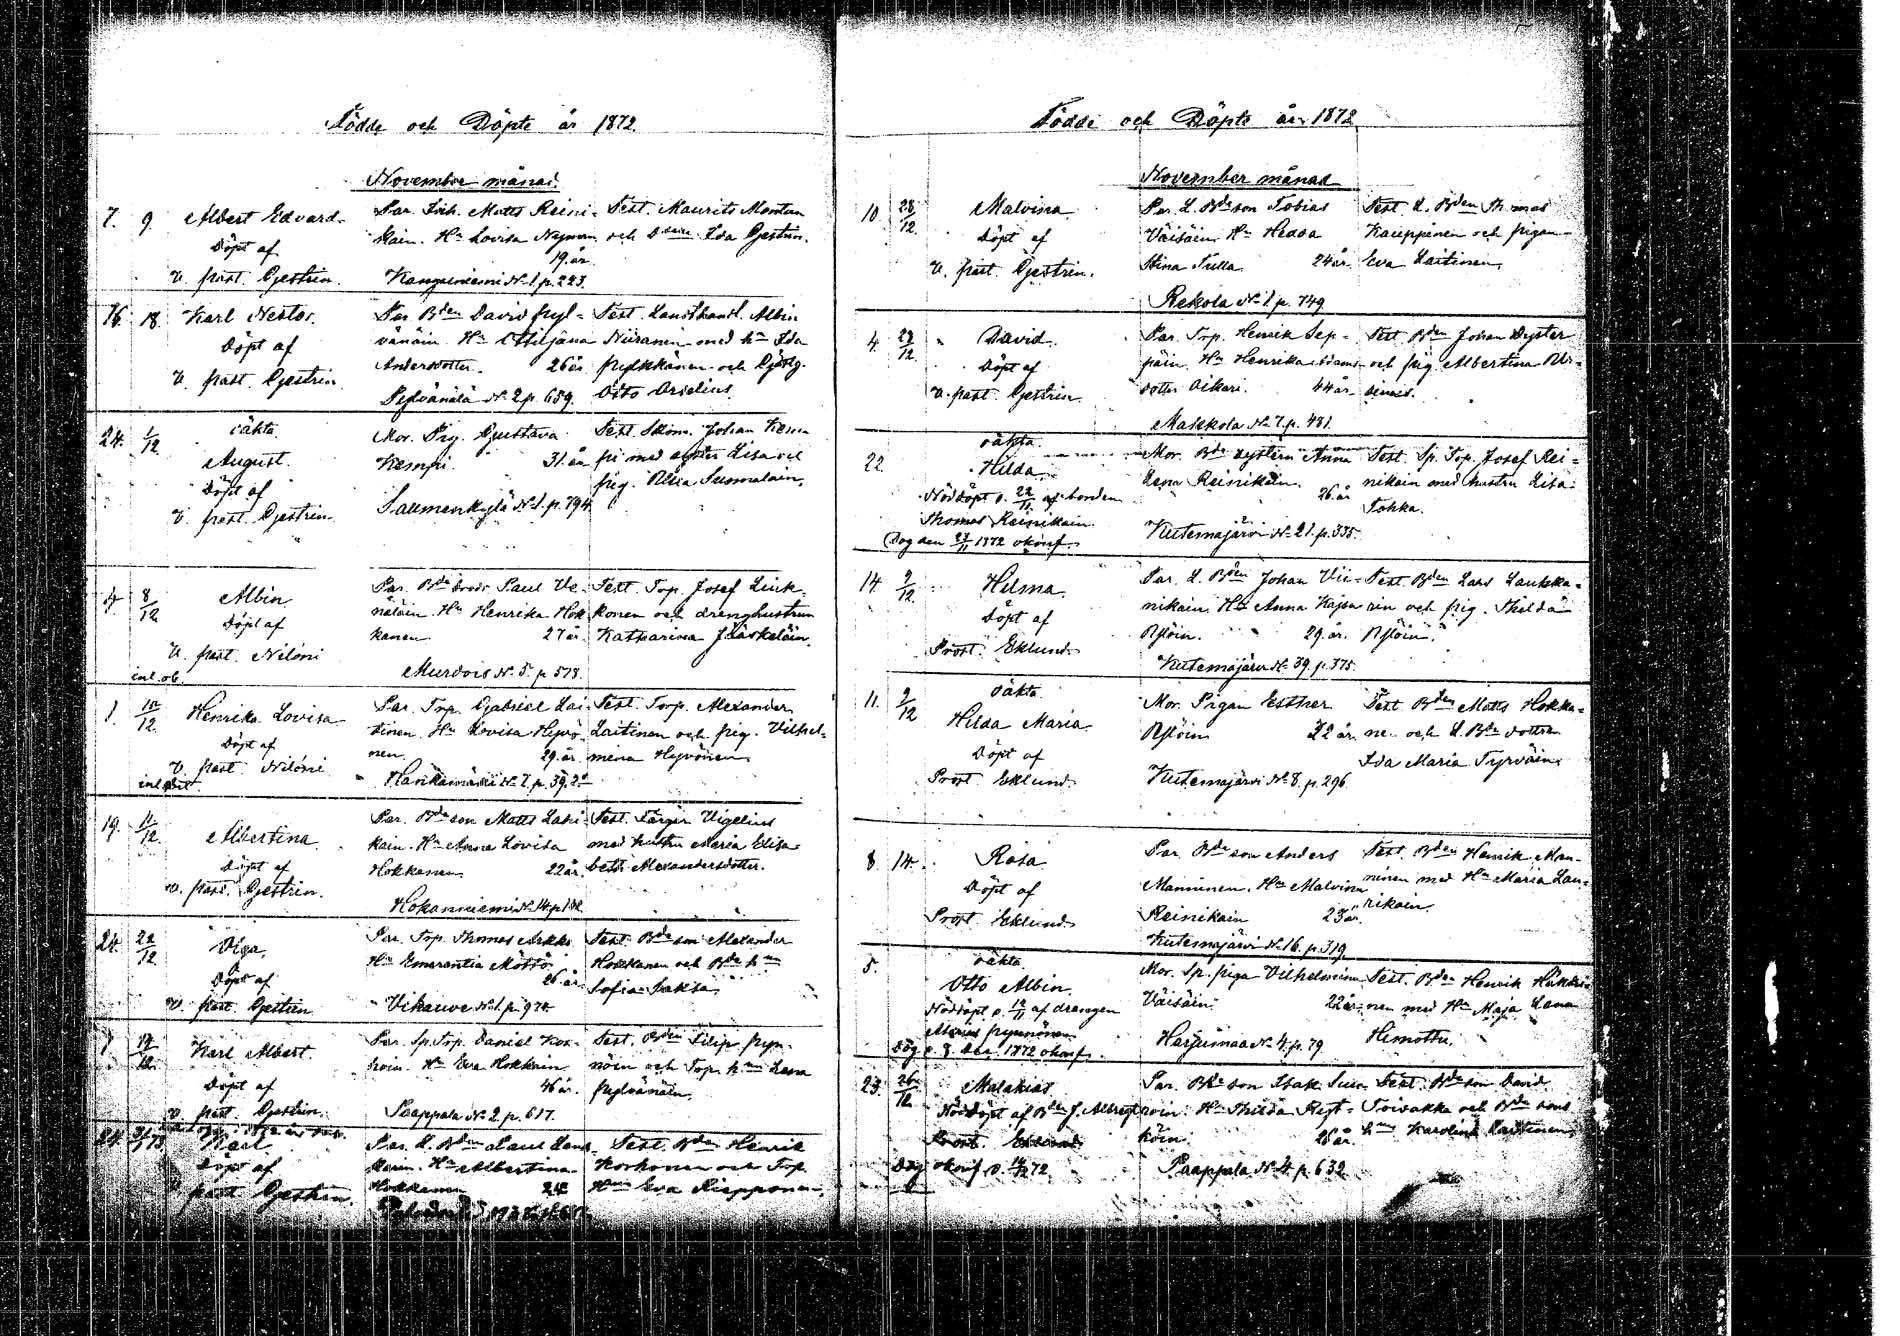 Födde och Döpte år 1872.
November månad.
7. 9. Albert Edvard
Döpt af
v. past. Gestrin.
Par. Inh. Matts Reini-
kain. Hu Lovisa Nyman
19 år
Kangasniemi No 1 p. 223.
Test. Maurits Montin
och Ida Gestrin.
16. 18. Karl Nestor.
Döpt af
v. past. Gestrin.
Par. Bden David Pyl-
vänäin. Hu Ottiljana
Andersdotter. 26 år
Pylvänälä No 2 p. 659.
Test. Landthandl. Albin
Niiranen med hu Ida
Pykkänen och
Otto
24. 1/12 oäkta
August.
Döpt af
v. past. Gestrin
Mor. Pig. Gustava
Kemppi. 31 år
Salmenkylä No 1 p. 794
Test. Skom. Johan Kem-
pi med syster Lisa och
pig.
4. 8/12 Albin
Döpt af
v. past. Nilóni
Par. Bde brodr Paul Ve-
näläin. Hu Henrika Hok
kanen 27 år.
Murdois No 5. p. 578.
Test. Torp. Josef Link-
konen och dränghustrun
Katharina Jääskeläin.
inl. ob.
1. 10/12 Henrika Lovisa
Döpt af
v. past. Nilóni
Par. Trp. Gabriel Lai-
tinen. Hu Lovisa Hyvö-
nen 29 år
No 7. p. 39
Test. Torp. Alexander
Laitinen och pig. Vilhel-
mina Hyvönen
19. 11/12 Albertina
Döpt af
v. past. Gestrin.
Par. Bde son Matts Lati-
kain. Hu Anna Lovisa
Hokkanen 22 år.
Hokanniemi No 14 p.
Test. Färgar Vigelius
med hustru Maria Elisa-
beth Alexandersdotter.
24. 22/12 Olga
Döpt af
v. past. Gestrin
Par. Trp. Thomas Arkko
Hu Emerantia Möttö
26 år
Vikauve No 1. p. 972.
Test. Bde son Alexander
Hokkanen och Bde hu
Sofia Laksa
Karl Albert.
Döpt af
v. past. Gestrin.
Par. Sp. Trp. Daniel Kor-
hoin. Hu Eva Hokkain
46 år.
Paappala No 2 p. 617.
Test. Bden Filip Pyn-
nöin och Torp. hu Lena
Pylvänäin.
24. Karl
Döpt af
v. past Gestrin.
Par. L. Bden Paul
Hu Albertina
Hokkanen 24
Test. Bden Henrik
Korhonen och Torp.
Hu Eva Riepponen.
Födde och Döpte år 1872
November månad
10. 28/12 Malvina
Döpt af
v. past. Gestrin.
Par. L. Bde son Tobias
Väisäin. Hu Hedda
Stina Tulla 24 år.
Rekola No 1 p. 749
Test. L. Bden Thomas
Kauppinen och pigan
Eva Laitinen
4. 29/12 David
Döpt af
v. past. Gestrin
Par. Trp. Henrik Sep-
päin. Hu Henrika Adams-
dotter Oikari. 44 år
Makkola No 7. p. 481.
Test. Bden Johan Dyster
och pig. Albertina
22. oäkta
Hilda
Nöddöpt d. 22/11 af bonden
Thomas Reinikain.
Dog den 23/11 1872 okonf.
Mor. Bde systern Anna
Lena Reinikain. 26 år
Kutemajärvi No 21. p. 335.
Test. Sp. Torp. Josef Rei-
nikain med hustru Lisa
Tohka.
14 9/12 Helma
Döpt af
Prost. Eklund
Par. L. Bden Johan Vii-
nikain. Hu Anna Kajsa
Ryöin. 29 år.
Kutemajärvi No 39. p. 375.
Test. Bden Lars Laukka-
rin och pig. Thilda
Ryöin.
11. 9/12 oäkta
Hilda Maria
Döpt af
Prost Eklund
Mor. Pigan Esther
Ryöin 22 år
Kutemajärvi No 8. p. 296
Test. Bden Matts Hokka-
ne och L. Bde dottren
Ida Maria Tyrväin
8. 14. Rosa
Döpt af
Prost Eklund
Par. Bde son Anders
Manninen. Hu Malvina
Reinikain 23 år
Kutemajärvi No 16. p. 319
Test. Bden Henrik Man-
ninen med Hu Maria Lau-
rikain.
5. oäkta
Otto Albin
Nöddöpt d. 12/11 af drängen
Pynnönen
Dog d. 8. Dec. 1872 okonf.
Mor. Sp. piga Vilhelmina
Väisäin 22 år
Harjumaa No 4. p. 79
Test. Bden Henrik Häkki-
nen med Hu Maja Lena
Himottu.
23. 26/12 Malakias
Nöddöpt af Bden J. Albregt
Prost Eklund
Dog okonf. d. 14/12 72
Par. Bde son Isak Suu-
roin. Hu Thilda
köin. 26 år.
Paappala No 4. p. 632
Test. Bde son David
Toivakka och Bde sons
hu Karolina Laitinen